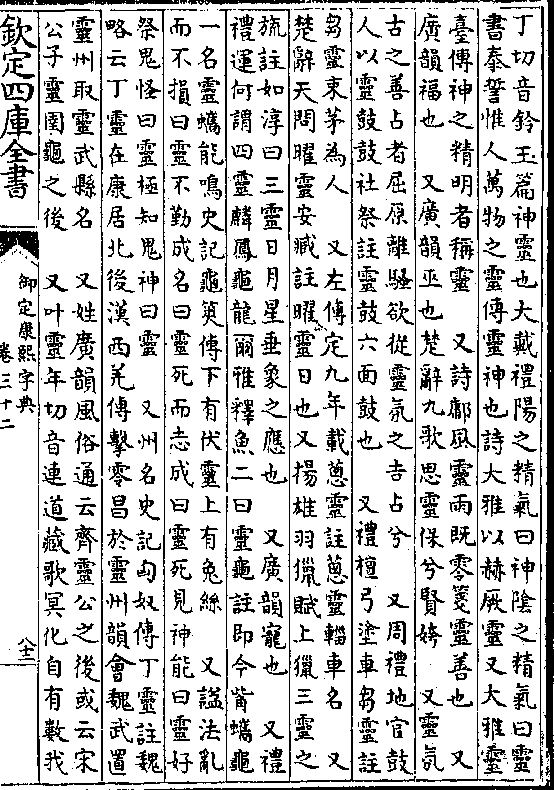 丁切音鈴玉篇神靈也大戴禮陽之精氣曰神陰之精氣曰靈
書泰誓惟人萬物之靈傳靈神也詩大雅以赫厥靈又大雅靈
臺傳神之精明者稱靈　又詩鄘風靈雨既零箋靈善也　又
廣韻福也　又廣韻巫也楚辭九歌思靈保兮賢姱　又靈氛
古之善占者屈原離騷欲從靈氛之吉占兮　又周禮地官鼓
人以靈鼓鼓社祭註靈鼓六面鼓也　又禮檀弓塗車芻靈註
芻靈束茅為人　又左傳定九年載蔥靈註蔥靈輜車名　又
楚辭天問曜靈安臧註曜靈日也又揚雄羽獵賦上獵三靈之
旒註如淳曰三靈日月星垂象之應也　又廣韻寵也　又禮
禮運何謂四靈麟鳳龜龍爾雅釋魚二曰靈龜註即今觜蠵龜
一名靈蠵能鳴史記龜筴傳下有伏靈上有兔絲　又諡法亂
而不損曰靈不勤成名曰靈死而志成曰靈死見神能曰靈好
祭鬼怪曰靈極知鬼神曰靈　又州名史記匈奴傳丁靈註魏
略云丁靈在康居北後漢西羌傳擊零昌於靈州韻會魏武置
靈州取靈武縣名　又姓廣韻風俗通云齊靈公之後或云宋
公子靈圍龜之後　又叶靈年切音連道藏歌冥化自有數我
欽定四庫全書
御定康熙字典
卷三十二
八十三